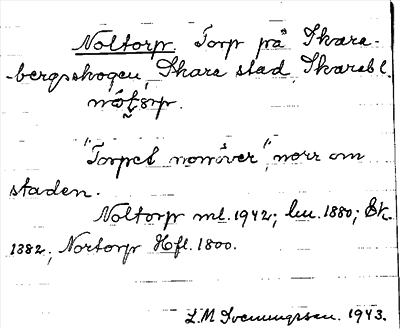 Noltorp. Torp på Skara-
bergsskogen, Skara stad, Skarab l.
"Torpet norröver", norr om
staden.
Noltorp ml. 1942; lm. 1880; Ek.
1382; Nortorp Hfl. 1800.
L.M Svenungsson. 1943.